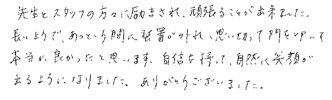 先生とスタッフの方々に励まされ、頑張ることが出来ました。
長いようで、あっという間に装置が外れ、思い切って門を叩いて
本当に良かったと思います。自信を持って、自然に笑顔が
出るようになりました。ありがとうございました。